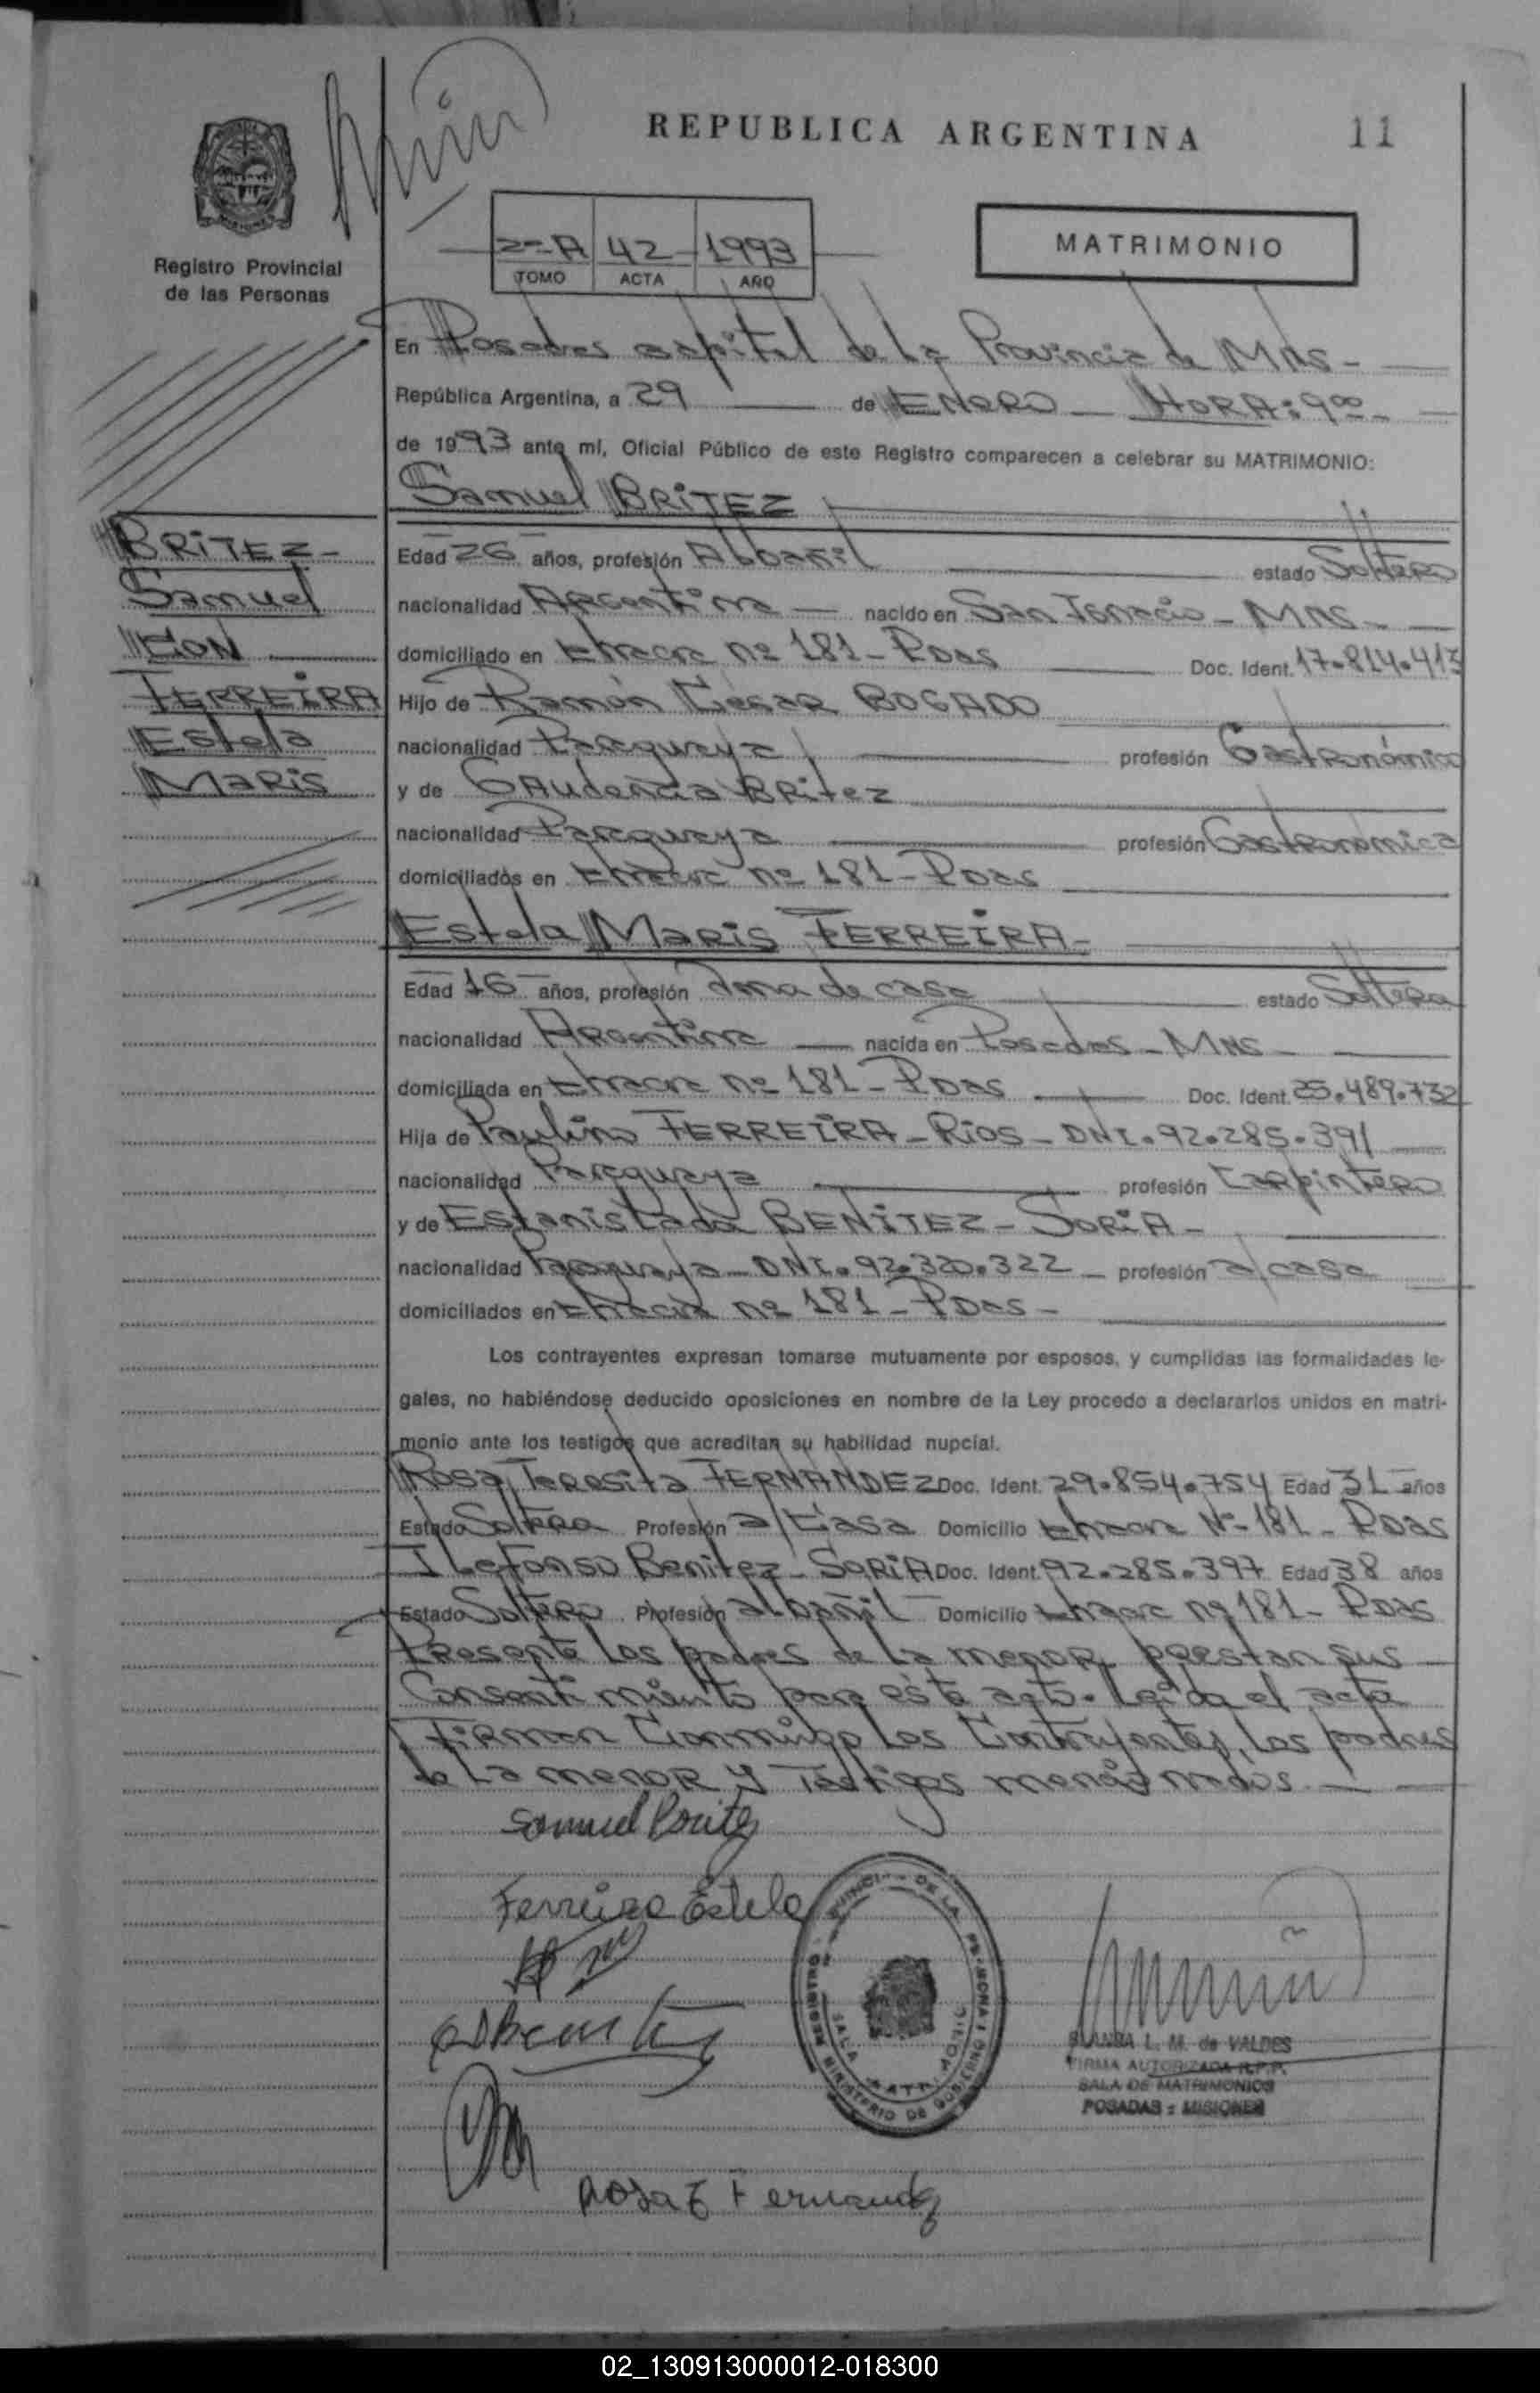 REPUBLICA ARGENTINA
11
Registro Provincial
de las Personas
2=A 42 1993
TOMO ACTA AÑO
MATRIMONIO
En Posadas capital de La Provincia de MNS-
República Argentina, a 29 de ENERO - HORA: 9 00-
de 1993 ante mí, Oficial Público de este Registro comparecen a celebrar su MATRIMONIO:
Samuel BRITEZ
BRITEZ-
Samuel
CON
FERREIRA
Estela
Maris
Edad 26 años, profesión Albañil estado Soltero
nacionalidad Argentina nacido en San Ignacio - MNS-
domiciliado en Chacra nº 181-Pdas Doc. Ident. 17.814.413
Hijo de Ramón César BOGADO
nacionalidad Paraguaya profesión Gastronómico
y de GAudencia BRitez
nacionalidad Paraguaya profesión Gastronomica
domiciliados en Chacra nº 181-Pdas
Estela Maris FERREIRA-
Edad 16 años, profesión Ama de casa estado Soltera
nacionalidad Argentina nacida en Posadas - MNS-
domiciliada en Chacra nº 181-Pdas Doc. Ident. 25.489.732
Hija de Paulino FERREIRA-Rios-DNI.92.285.391
nacionalidad Paraguaya profesión Carpintero
y de Estanislada BENITEZ-SORIA-
nacionalidad Paraguaya-DNI.92.320.322- profesión a/casa
domiciliados en Chacra nº 181-Pdas-
Los contrayentes expresan tomarse mutuamente por esposos, y cumplidas las formalidades le-
gales, no habiéndose deducido oposiciones en nombre de la Ley procedo a declararlos unidos en matri-
monio ante los testigos que acreditan su habilidad nupcial.
Rosa Teresita FERNANDEZ Doc. Ident. 29.854.754 Edad 31 años
Estado Soltera Profesión a/Casa Domicilio Chacra Nº 181- Pdas
ILefonso Benitez-SORIA Doc. Ident. 92.285.397 Edad 38 años
Estado Soltero Profesión albañil Domicilio Chacra nº 181- Pdas
Presente los padres de La menor prestan sus
Consentimiento para este acto. Leída el acta
Firman Conmigo los Contrayentes, los padres
de La menor y Testigos mencionados.
Samuel Britez
Ferreira Estela
Rosa T Fernandez
BLANCA L. M. de VALDES
FIRMA AUTORIZADA R.P.P.
SALA DE MATRIMONIOS
POSADAS : MISIONES
02_130913000012-018300